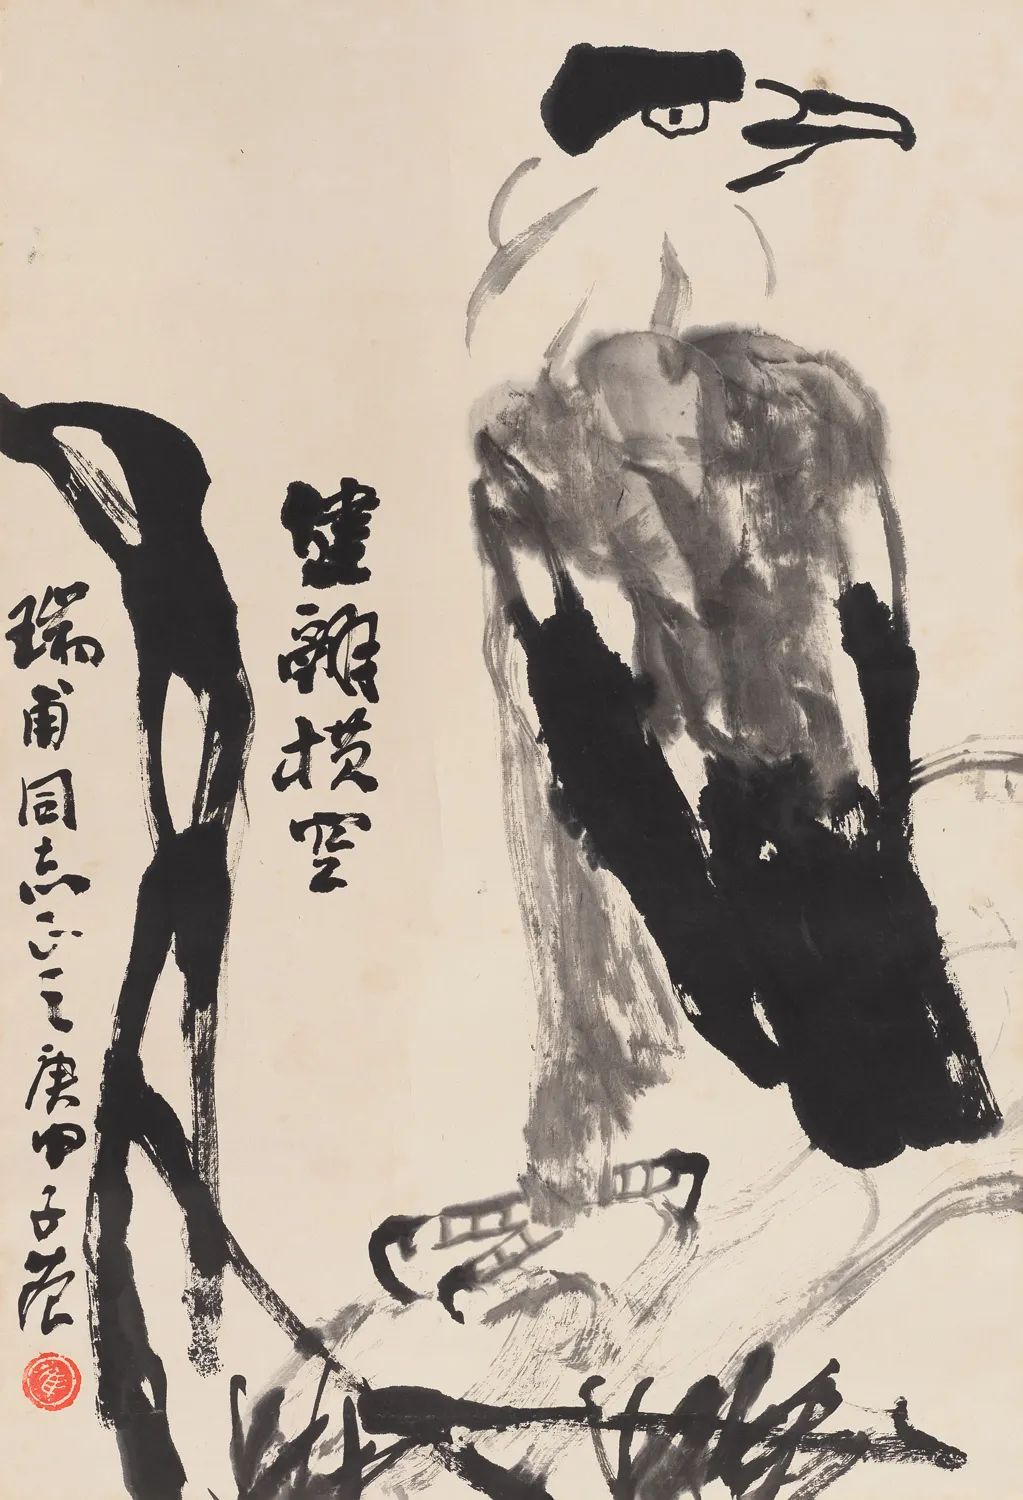 健翮横空
瑞甫同志正之庚申子范
崔